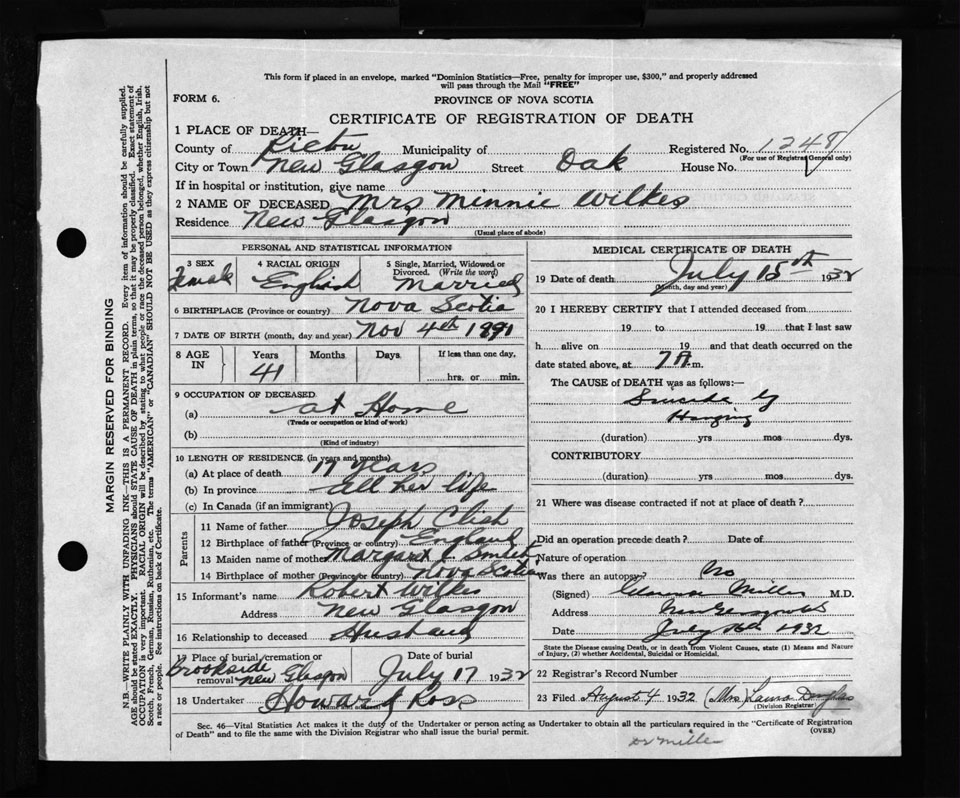 This form if placed in an envelope, marked "Dominion Statistics—Free, penalty for improper use, $300," and properly addressed
will pass through the Mail "FREE"
FORM 6.
PROVINCE OF NOVA SCOTIA
CERTIFICATE OF REGISTRATION OF DEATH
1 PLACE OF DEATH—
County of Pictou Municipality of Registered No. 1248
(For use of Registrar General only)
City or Town New Glasgow Street Oak House No.
If in hospital or institution, give name
2 NAME OF DECEASED Mrs Minnie Wilkes
Residence New Glasgow
(Usual place of abode)
PERSONAL AND STATISTICAL INFORMATION
3 SEX
Female
4 RACIAL ORIGIN
English
5 Single, Married, Widowed or
Divorced. (Write the word)
Married
6 BIRTHPLACE (Province or country) Nova Scotia
7 DATE OF BIRTH (month, day and year) Nov 4th 1891
8 AGE
IN
Years
41
Months
Days
If less than one day,
hrs. or min.
9 OCCUPATION OF DECEASED
(a) at Home
(Trade or occupation or kind of work)
(b)
(Kind of industry)
10 LENGTH OF RESIDENCE (in years and months)
(a) At place of death 17 years
(b) In province all her life
(c) In Canada (if an immigrant)
Parents
11 Name of father Joseph Clish
12 Birthplace of father (Province or country) England
13 Maiden name of mother Margaret
14 Birthplace of mother (Province or country) Nova Scotia
15 Informant's name Robert Wilkes
Address New Glasgow
16 Relationship to deceased Husband
17 Place of burial, cremation or
removal Brookside New Glasgow
Date of burial
July 17 1932
18 Undertaker Howard Ross
MEDICAL CERTIFICATE OF DEATH
19 Date of death July 15th 1932
(Month, day and year)
20 I HEREBY CERTIFY that I attended deceased from
19 to 19 that I last saw
h alive on 19 and that death occurred on the
date stated above, at 7 A.m.
The CAUSE of DEATH was as follows:—
Suicide by
Hanging
(duration) yrs mos dys.
CONTRIBUTORY
(duration) yrs mos dys.
21 Where was disease contracted if not at place of death?
Did an operation precede death? Date of
Nature of operation
Was there an autopsy? No
(Signed) Clarence Miller M.D.
Address New Glasgow NS
Date July 16th 1932
State the Disease causing Death, or in death from Violent Causes, state (1) Means and Nature
of Injury, (2) whether Accidental, Suicidal or Homicidal.
22 Registrar's Record Number
23 Filed August 4 1932 (Mrs) Laura Douglas
(Division Registrar)
Sec. 46—Vital Statistics Act makes it the duty of the Undertaker or person acting as Undertaker to obtain all the particulars required in the "Certificate of Registration
of Death" and to file the same with the Division Registrar who shall issue the burial permit.
(OVER)
Dr Miller
MARGIN RESERVED FOR BINDING
N.B.—WRITE PLAINLY WITH UNFADING INK—THIS IS A PERMANENT RECORD. Every item of information should be carefully supplied.
AGE should be stated EXACTLY. PHYSICIANS should STATE CAUSE OF DEATH in plain terms, so that it may be properly classified. Exact statement of
OCCUPATION is very important. RACIAL ORIGIN will be described by stating to what people or race the deceased person belonged, whether English, Irish,
Scotch, French, German, Russian, Ruthenian, etc. The terms "AMERICAN" or "CANADIAN" SHOULD NOT BE USED as they express citizenship but not
a race or people. See instructions on back of Certificate.